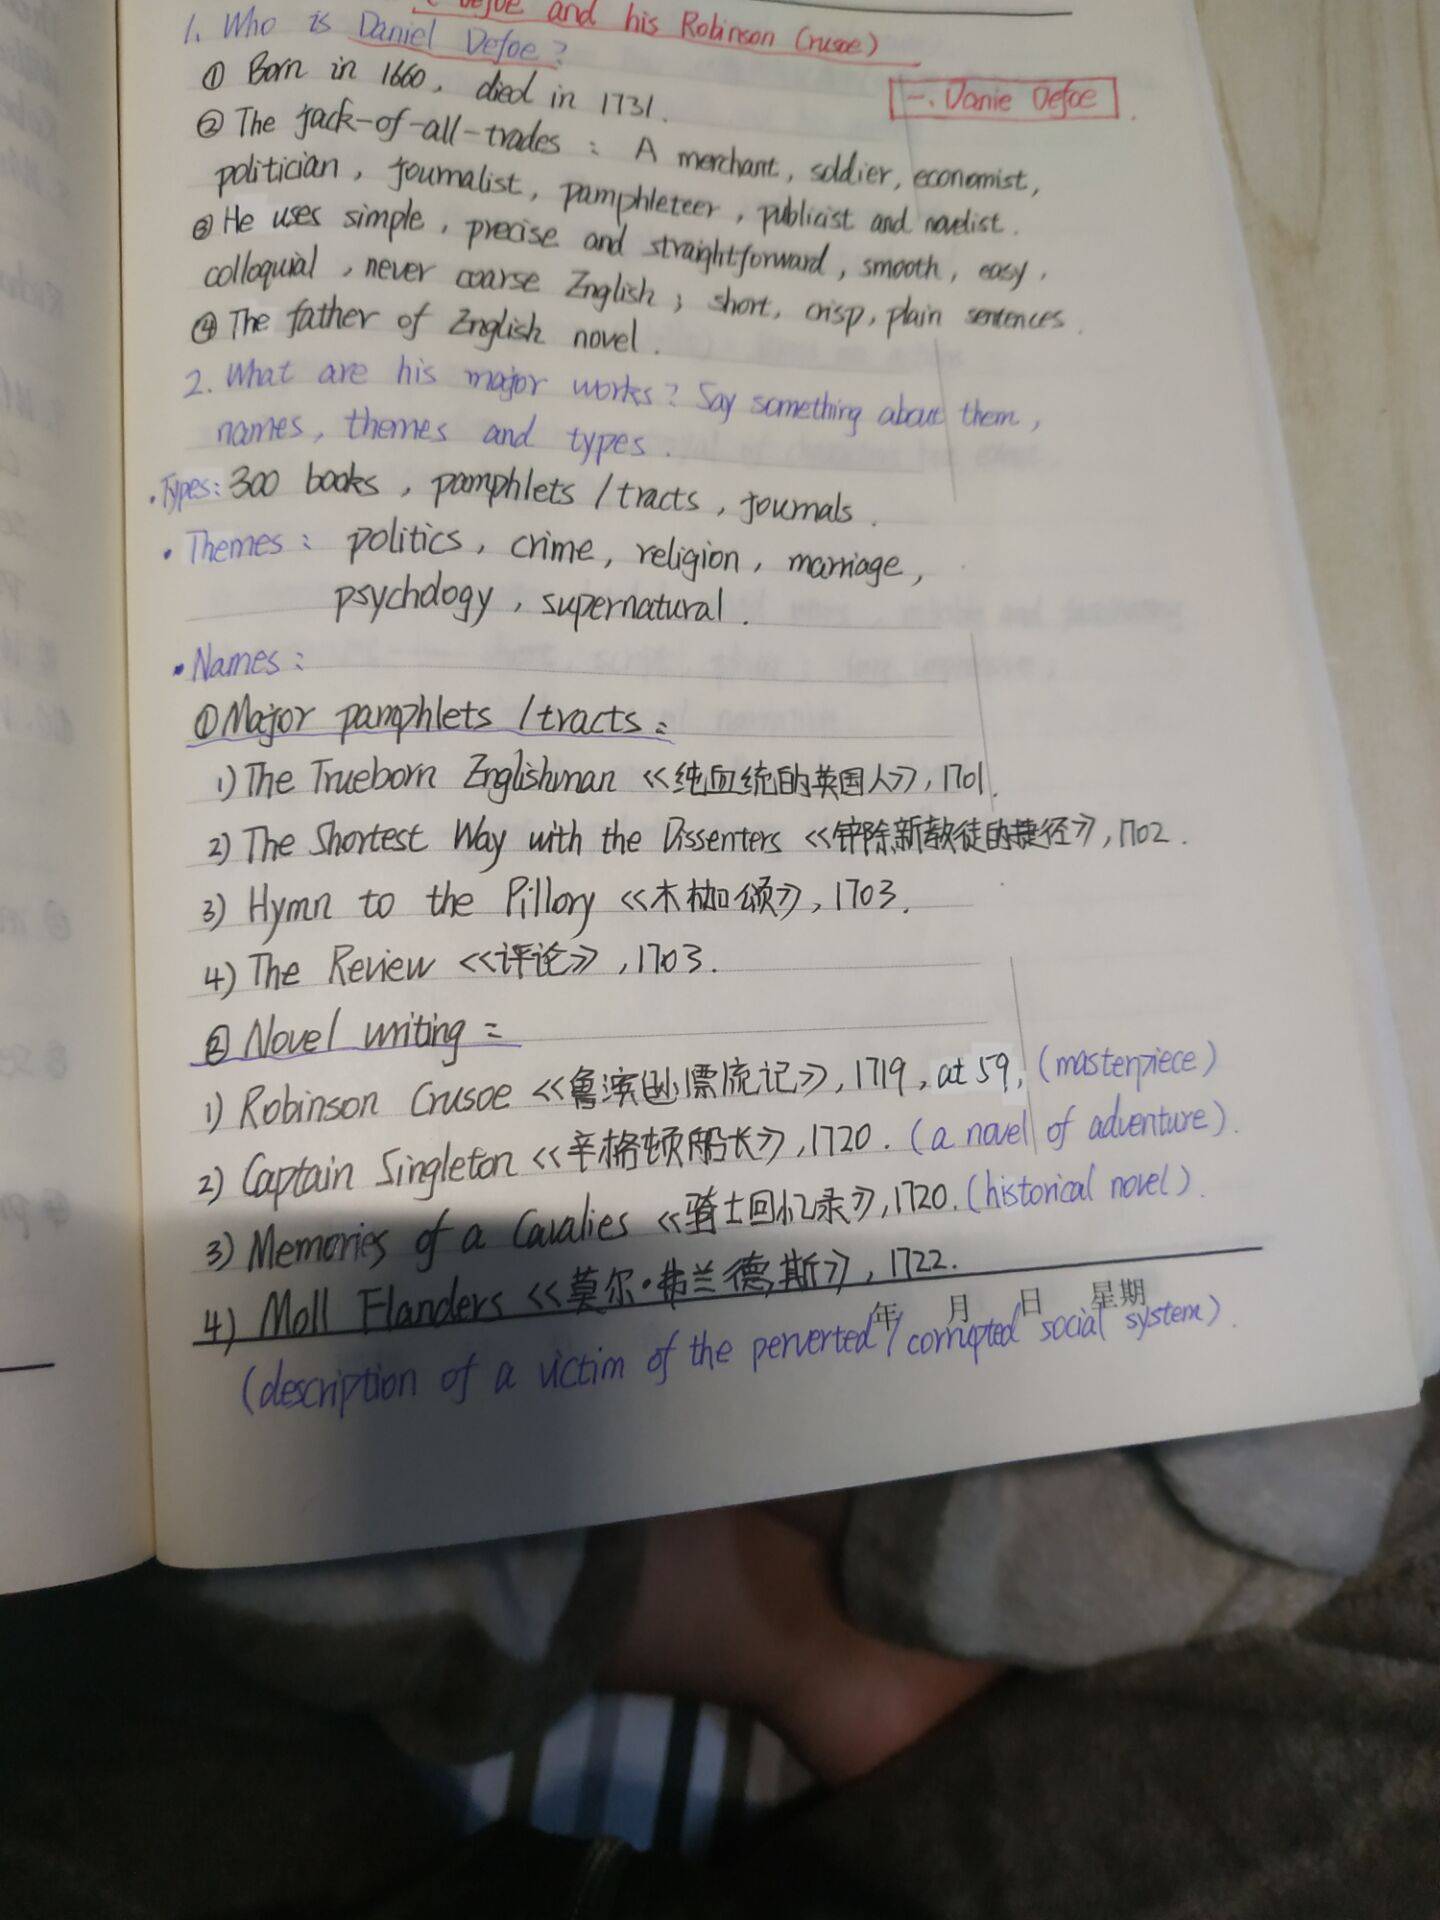 Defoe and his Robinson Crusoe)
1. Who is Daniel Defoe?
① Born in 1660, died in 1731.
一. Danie Defoe
② The jack-of-all-trades: A merchant, soldier, economist,
politician, journalist, pamphleteer, publicist and novelist.
③ He uses simple, precise and straightforward, smooth, easy,
colloquial, never coarse English; short, crisp, plain sentences.
④ The father of English novel.
2. What are his major works? Say something about them,
names, themes and types.
· Types: 300 books, pamphlets / tracts, journals.
· Themes: politics, crime, religion, marriage,
psychology, supernatural.
· Names:
① Major pamphlets / tracts:
1) The Trueborn Englishman 《纯血统的英国人》, 1701.
2) The Shortest Way with the Dissenters 《铲除新教徒的捷径》, 1702.
3) Hymn to the Pillory 《木枷颂》, 1703.
4) The Review 《评论》, 1703.
② Novel writing:
1) Robinson Crusoe 《鲁滨逊漂流记》, 1719, at 59, (masterpiece)
2) Captain Singleton 《辛格顿船长》, 1720. (a novel of adventure).
3) Memories of a Cavalies 《骑士回忆录》, 1720. (historical novel).
4) Moll Flanders 《莫尔·弗兰德斯》, 1722.
年 月 日 星期
(description of a victim of the perverted / corrupted social system).